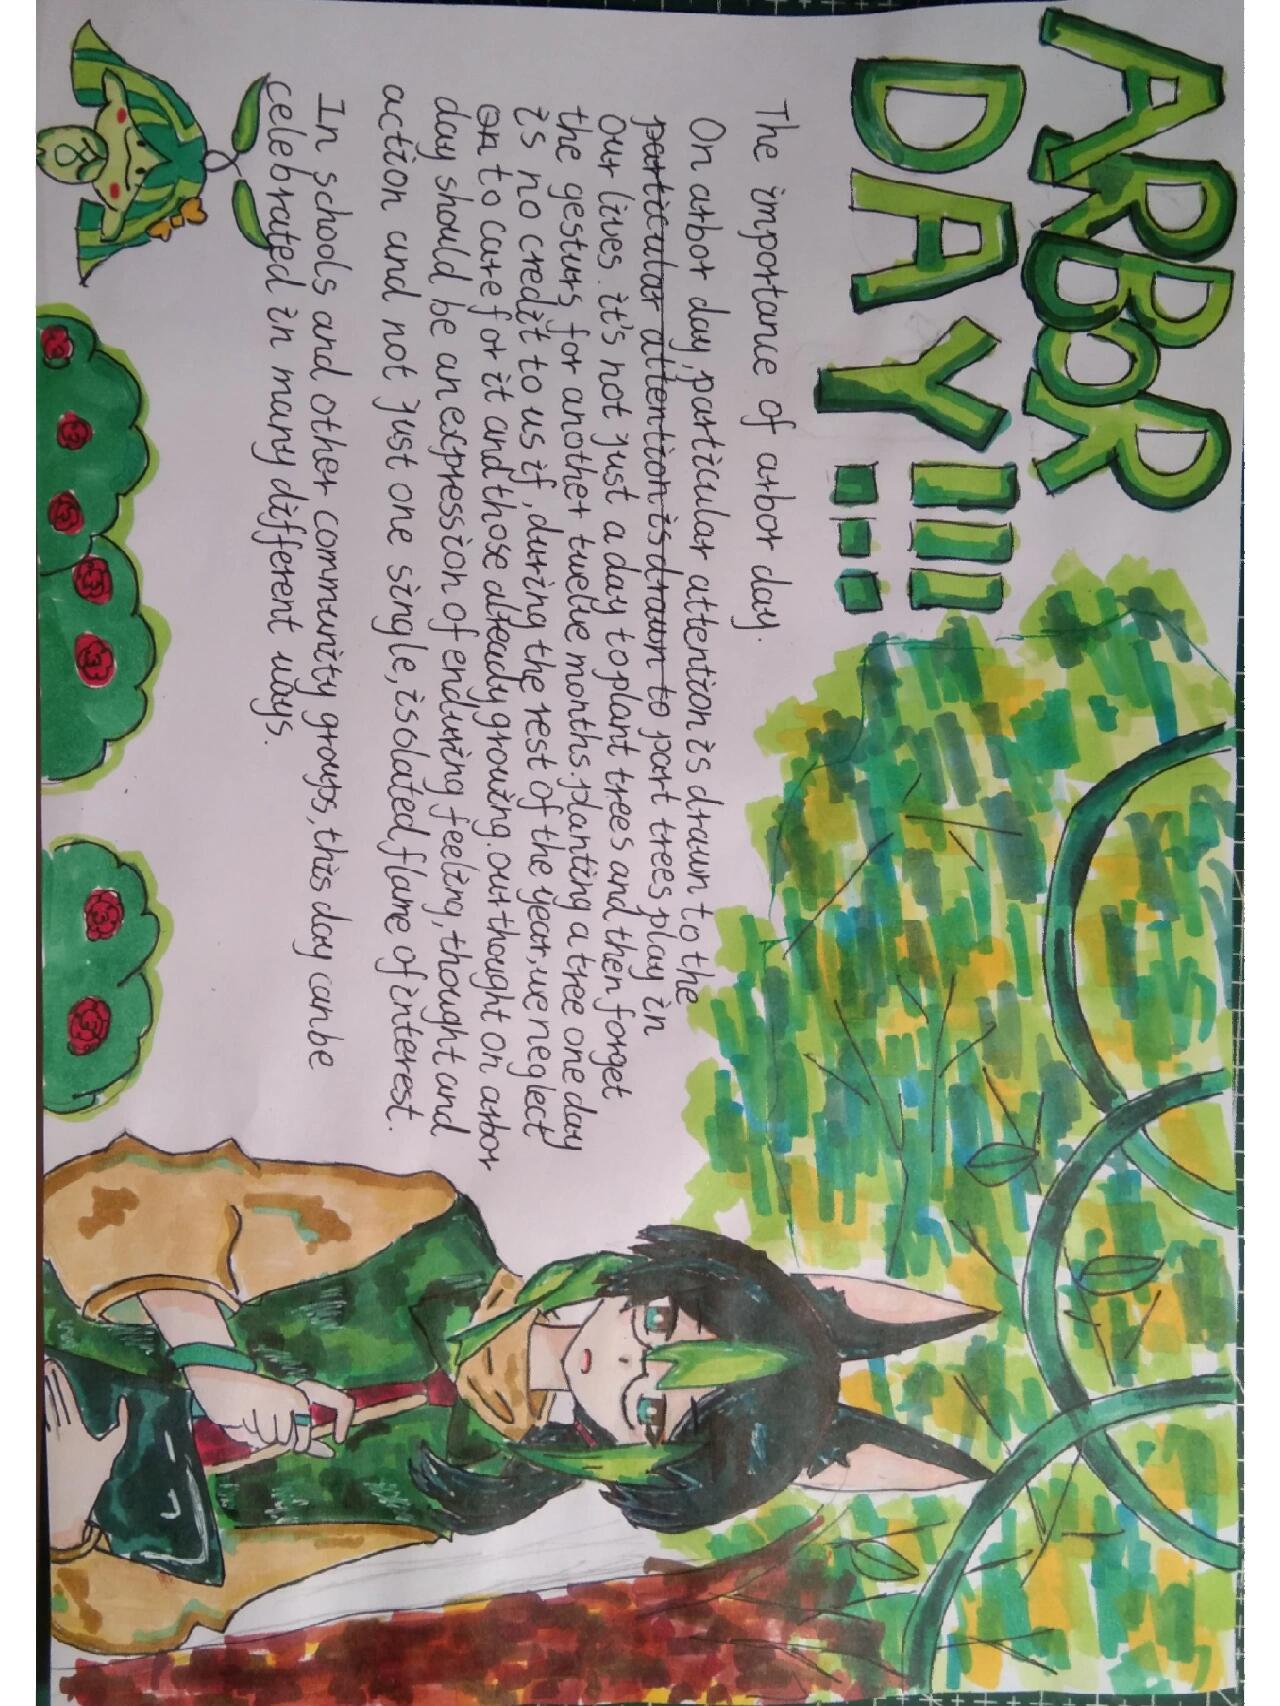 ARBOR
DAY!!!
The importance of arbor day.
On arbor day, particular attention is drawn to the
particular attention is drawn to part trees play in
our lives. it's not just a day to plant trees and then forget
the gesturs for another twelve months. planting a tree one day
is no credit to us if, during the rest of the year, we neglect
on to care for it and those already growing. our thought on arbor
day should be an expression of enduring feeling, thought and
action and not just one single, isolated, flame of interest.
In schools and other community groups, this day can be
celebrated in many different ways.